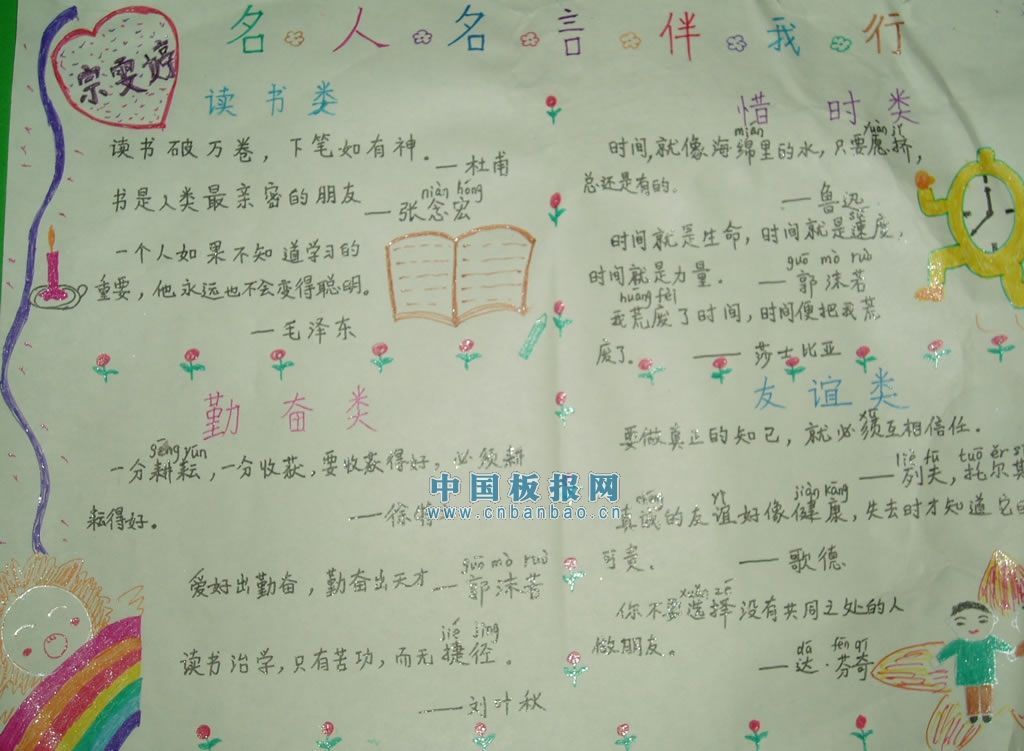 名人名言伴我行
宗雯婷
读书类
读书破万卷，下笔如有神。
—杜甫
niàn hóng
书是人类最亲密的朋友
—张念宏
一个人如果不知道学习的
重要，他永远也不会变得聪明。
—毛泽东
惜时类
mián
时间，就像海绵里的水，只要愿挤，
总还是有的。
—鲁迅
时间就是生命，时间就是速度，
guō mò ruò
时间就是力量．
—郭沫若
huāng fèi
我荒废了时间，时间便把我荒
废了。
——莎士比亚
勤奋类
gēng yún
一分耕耘，一分收获，要收获得好，必须耕
耘得好。
—徐特
guō mò ruò
爱好出勤奋，勤奋出天才
—郭沫若
jié jìng
读书治学，只有苦功，而无捷径。
——刘叶秋
友谊类
要做真正的知己，就必须互相信任．
—列夫，托尔斯
jiàn kāng
真诚的友谊好像健康，失去时才知道它的
可贵．
—歌德
xuǎn zé
你不要选择没有共同之处的人
做朋友。
dá fēn qí
—达·芬奇
中国板报网
www.cnbanbao.cn